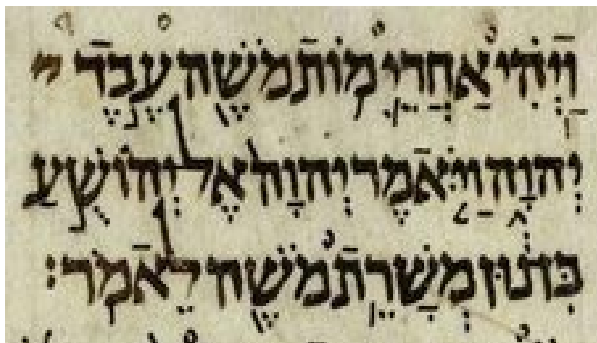 וַיְהִ֗י אַחֲרֵ֛י מ֥וֹת מֹשֶׁ֖ה עֶ֣בֶד
יְהוָ֑ה וַיֹּ֤אמֶר יְהוָה֙ אֶל יְהוֹשֻׁ֣עַ
בִּן נ֔וּן מְשָׁרֵ֥ת מֹשֶׁ֖ה לֵאמֹֽר׃